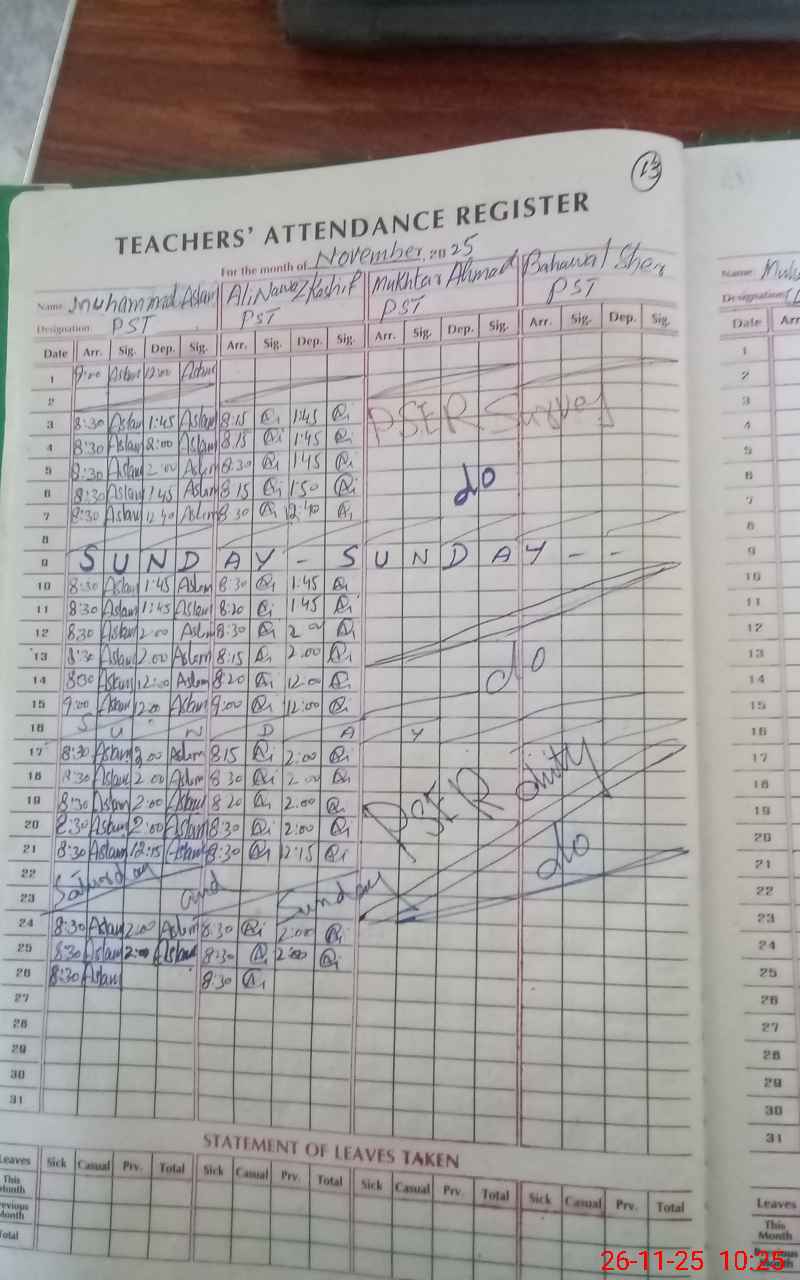 13
TEACHERS' ATTENDANCE REGISTER
For the month of November, 2025
Name Muhammad Aslam Ali Nawaz Kashif Mukhtar Ahmed Bahawal Sher
Designation PST PST PST PST
Date Arr. Sig. Dep. Sig. Arr. Sig. Dep. Sig. Arr. Sig. Dep. Sig. Arr. Sig. Dep. Sig.
1 9:00 Aslam 12:00 Aslam
2
3 8:30 Aslam 1:45 Aslam 8:15 1:45 PSER Survey
4 8:30 Aslam 2:00 Aslam 8:15 1:45
5 8:30 Aslam 2:00 Aslam 8:30 1:45
6 8:30 Aslam 1:45 Aslam 8:15 1:50 do
7 8:30 Aslam 12:40 Aslam 8:30 12:40
8
9 SUNDAY - SUNDAY - -
10 8:30 Aslam 1:45 Aslam 8:30 1:45
11 8:30 Aslam 1:45 Aslam 8:20 1:45
12 8:30 Aslam 2:00 Aslam 8:30 2:00
13 8:30 Aslam 2:00 Aslam 8:15 2:00 do
14 8:30 Aslam 12:00 Aslam 8:20 12:00
15 9:00 Aslam 12:00 Aslam 9:00 12:00
16 SUNDAY
17 8:30 Aslam 2:00 Aslam 8:15 2:00
18 8:30 Aslam 2:00 Aslam 8:30 2:00
19 8:30 Aslam 2:00 Aslam 8:20 2:00 PSER duty
20 8:30 Aslam 2:00 Aslam 8:30 2:00
21 8:30 Aslam 12:15 Aslam 8:30 12:15 do
22
23 Saturday and Sunday
24 8:30 Aslam 2:00 Aslam 8:30 2:00
25 8:30 Aslam 2:00 Aslam 8:30 2:00
26 8:30 Aslam 8:30
27
28
29
30
31
STATEMENT OF LEAVES TAKEN
Leaves Sick Casual Prv. Total Sick Casual Prv. Total Sick Casual Prv. Total Sick Casual Prv. Total
This Month
Previous Month
Total
Name
Designation
Date Arr
1
2
3
4
5
6
7
8
9
10
11
12
13
14
15
16
17
18
19
20
21
22
23
24
25
26
27
28
29
30
31
Leaves
This Month
Previous Month
26-11-25 10:25